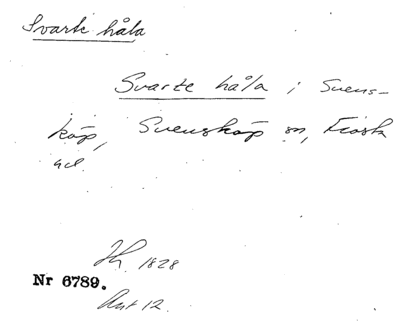 Svarte håla
Svarte håla i Svens-
köp, Svensköp sn, Frosta
hd.
1828
Nr 6789.
Ant 12.